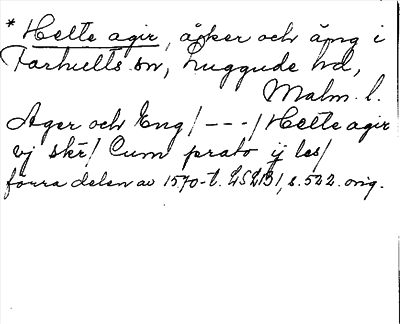 * Helle agir, åker och äng i
Farhults sn, Luggude hd,
Malm. l.
Ager och Eng / - - - / Helle agir
vj skr / Cum prato ij les /
förra delen av 1570-t. LSLB1, s. 522. orig.